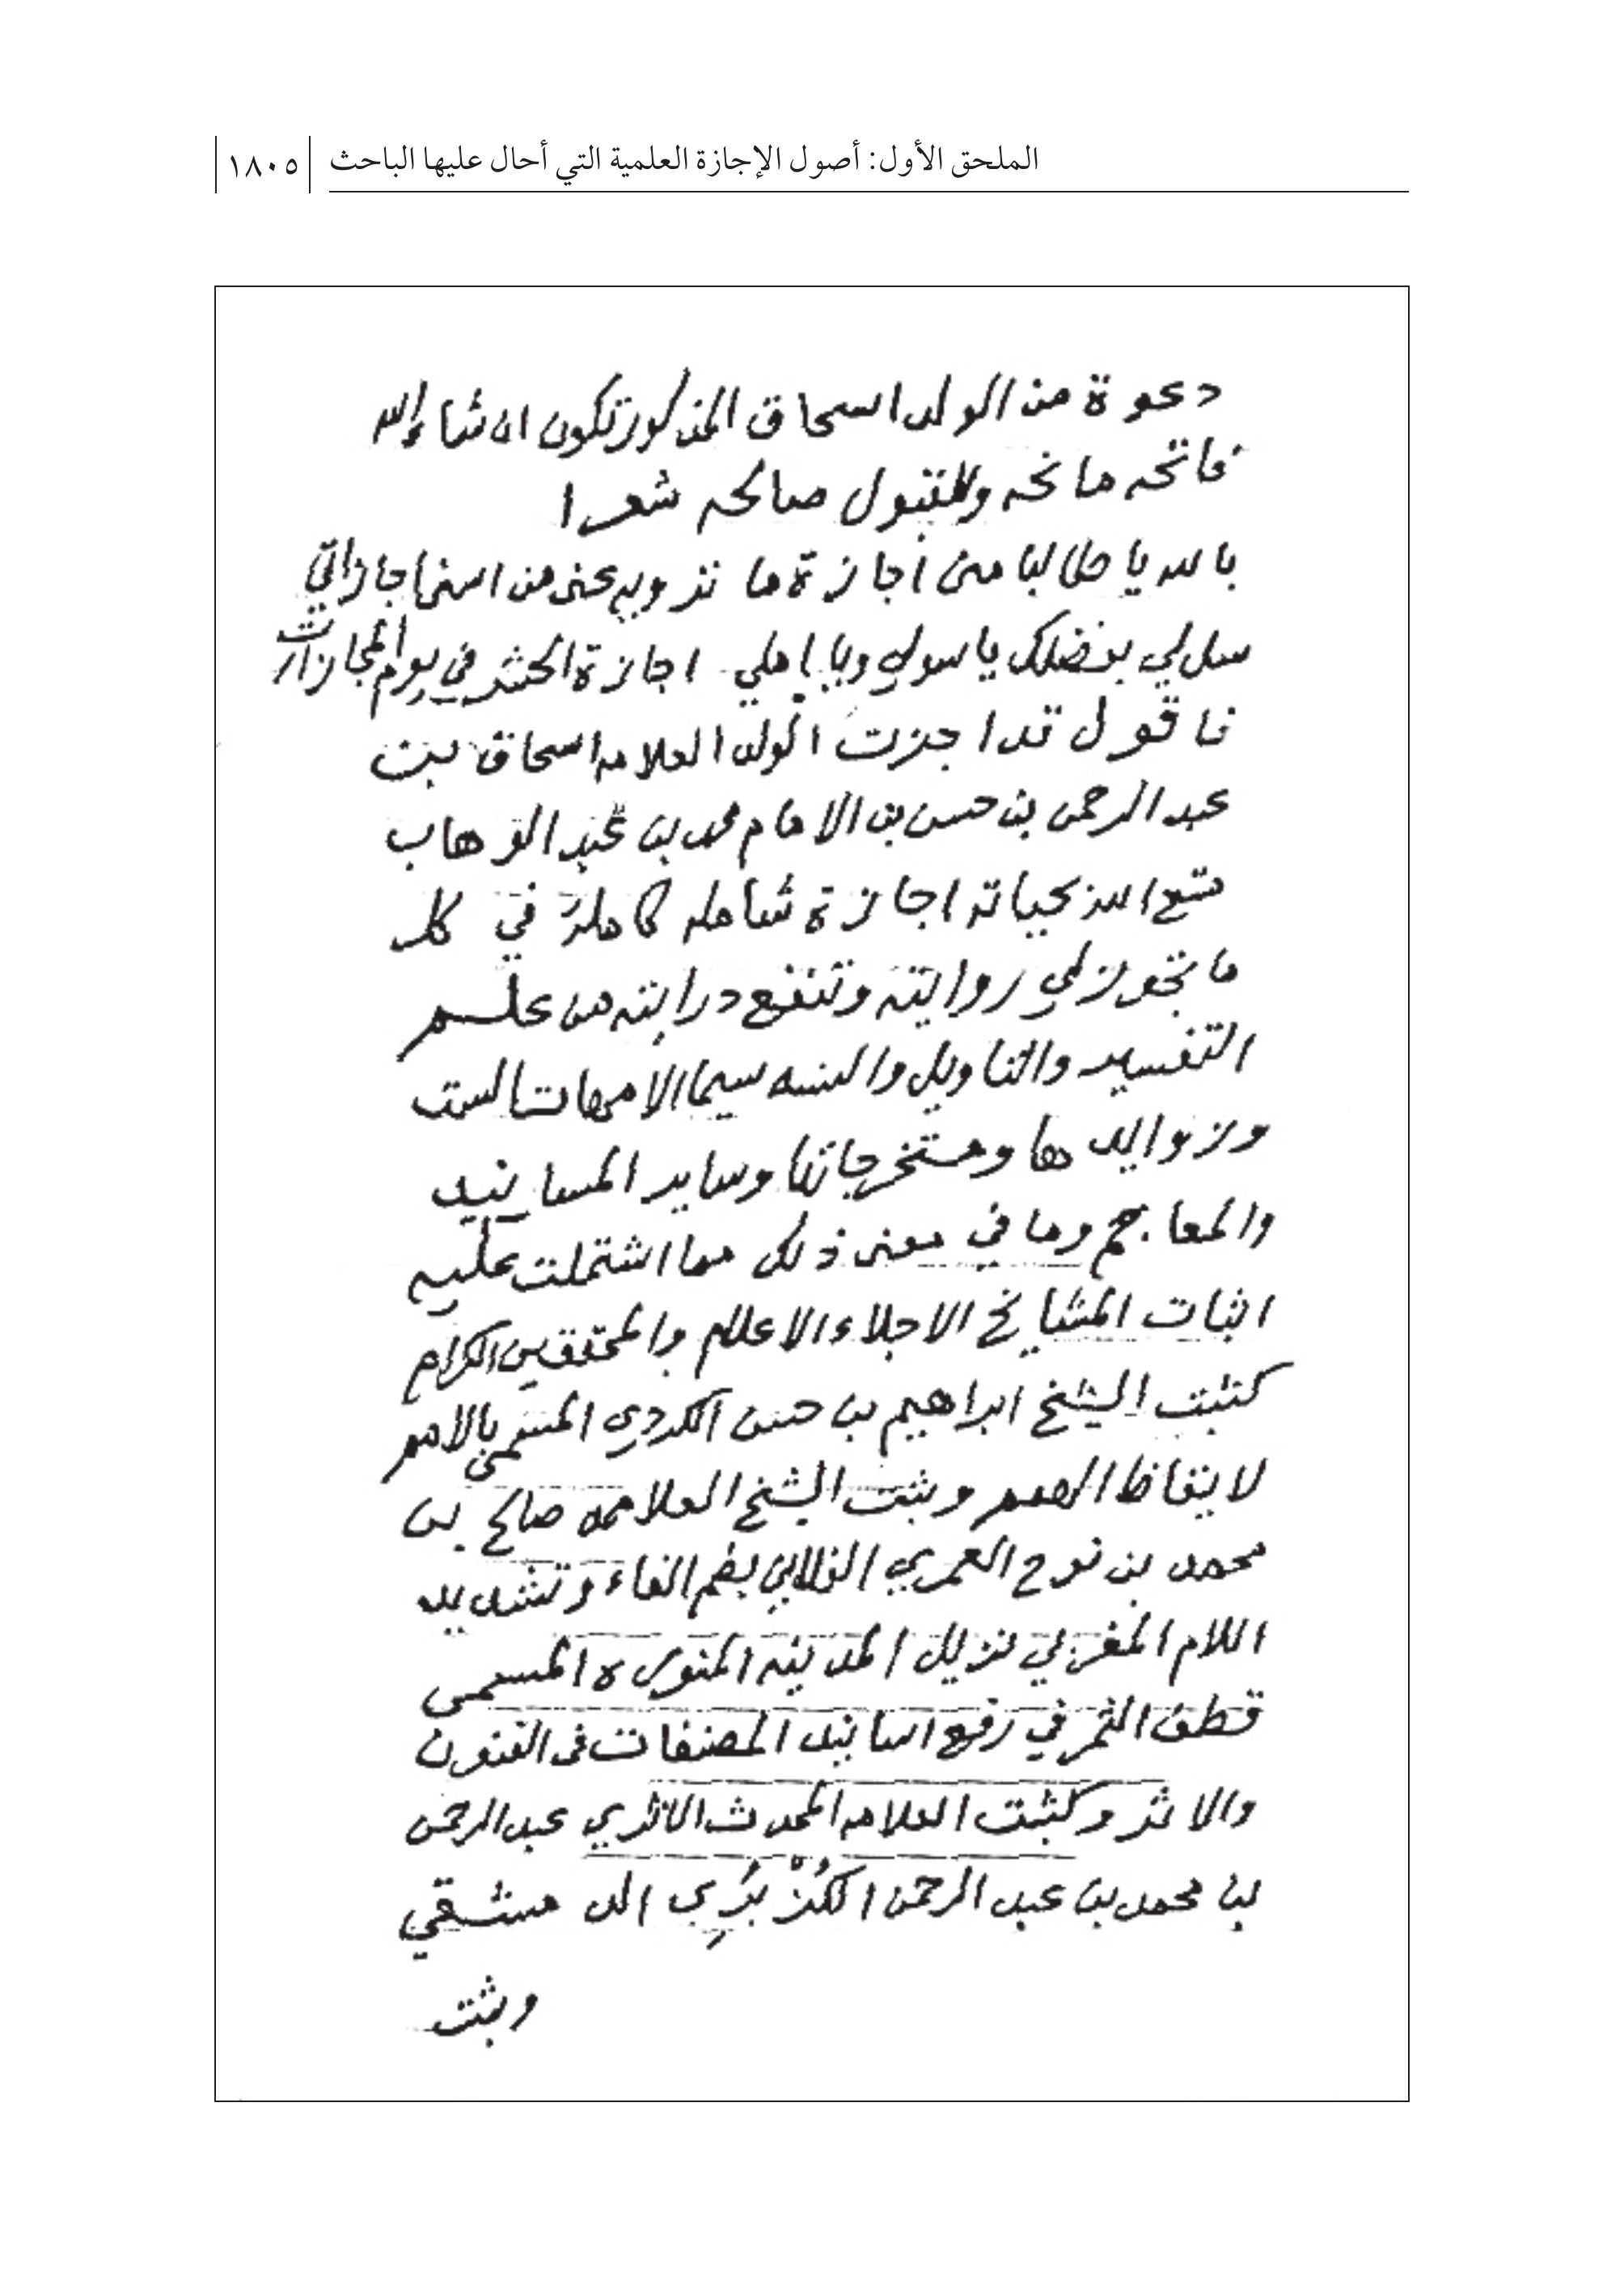 الملحق الأول: أصول الإجازة العلمية التي أحال عليها الباحث ١٨٠٥
دعوة من الولد اسحاق المذكور تكون ان شاء الله
فاتحه مانحه وللقبول صالحه شعرا
بالله يا طالبا مني اجازة ما تزويه عني من اسنى اجازاتي
سل لي بفضلك يا سولي ويا املي اجازة الحشر في يوم المجازات
فاقول قد اجزت الولد العلامه اسحاق بن
عبد الرحمن بن حسن بن الامام محمد بن عبد الوهاب
متع الله بحياته اجازة شامله كاملة في كل
ما تجوز لي روايته وتنفع درايته من علم
التفسير والتاويل والسنه سيما الامهات الست
وزوايدها ومستخرجاتها وساير المسانيد
والمعاجم وما في معنى ذلك مما اشتملت عليه
اثبات المشايخ الاجلاء الاعلام والمحققين الكرام
كثبت الشيخ ابراهيم بن حسن الكردي المسمى بالامم
لايقاظ الهمم وبثت الشيخ العلامه صالح بن
محمد بن نوح العمري الفلاني بضم الفاء وتشديد
اللام المغربي نزيل المدينه المنوره المسمى
قطف الثمر في رفع اسانيد المصنفات في الفنون
والاثر وكثبت العلامه المحدث الاثري عبد الرحمن
بن محمد بن عبد الرحمن الكُزْبَرِي الدمشقي
وبثت